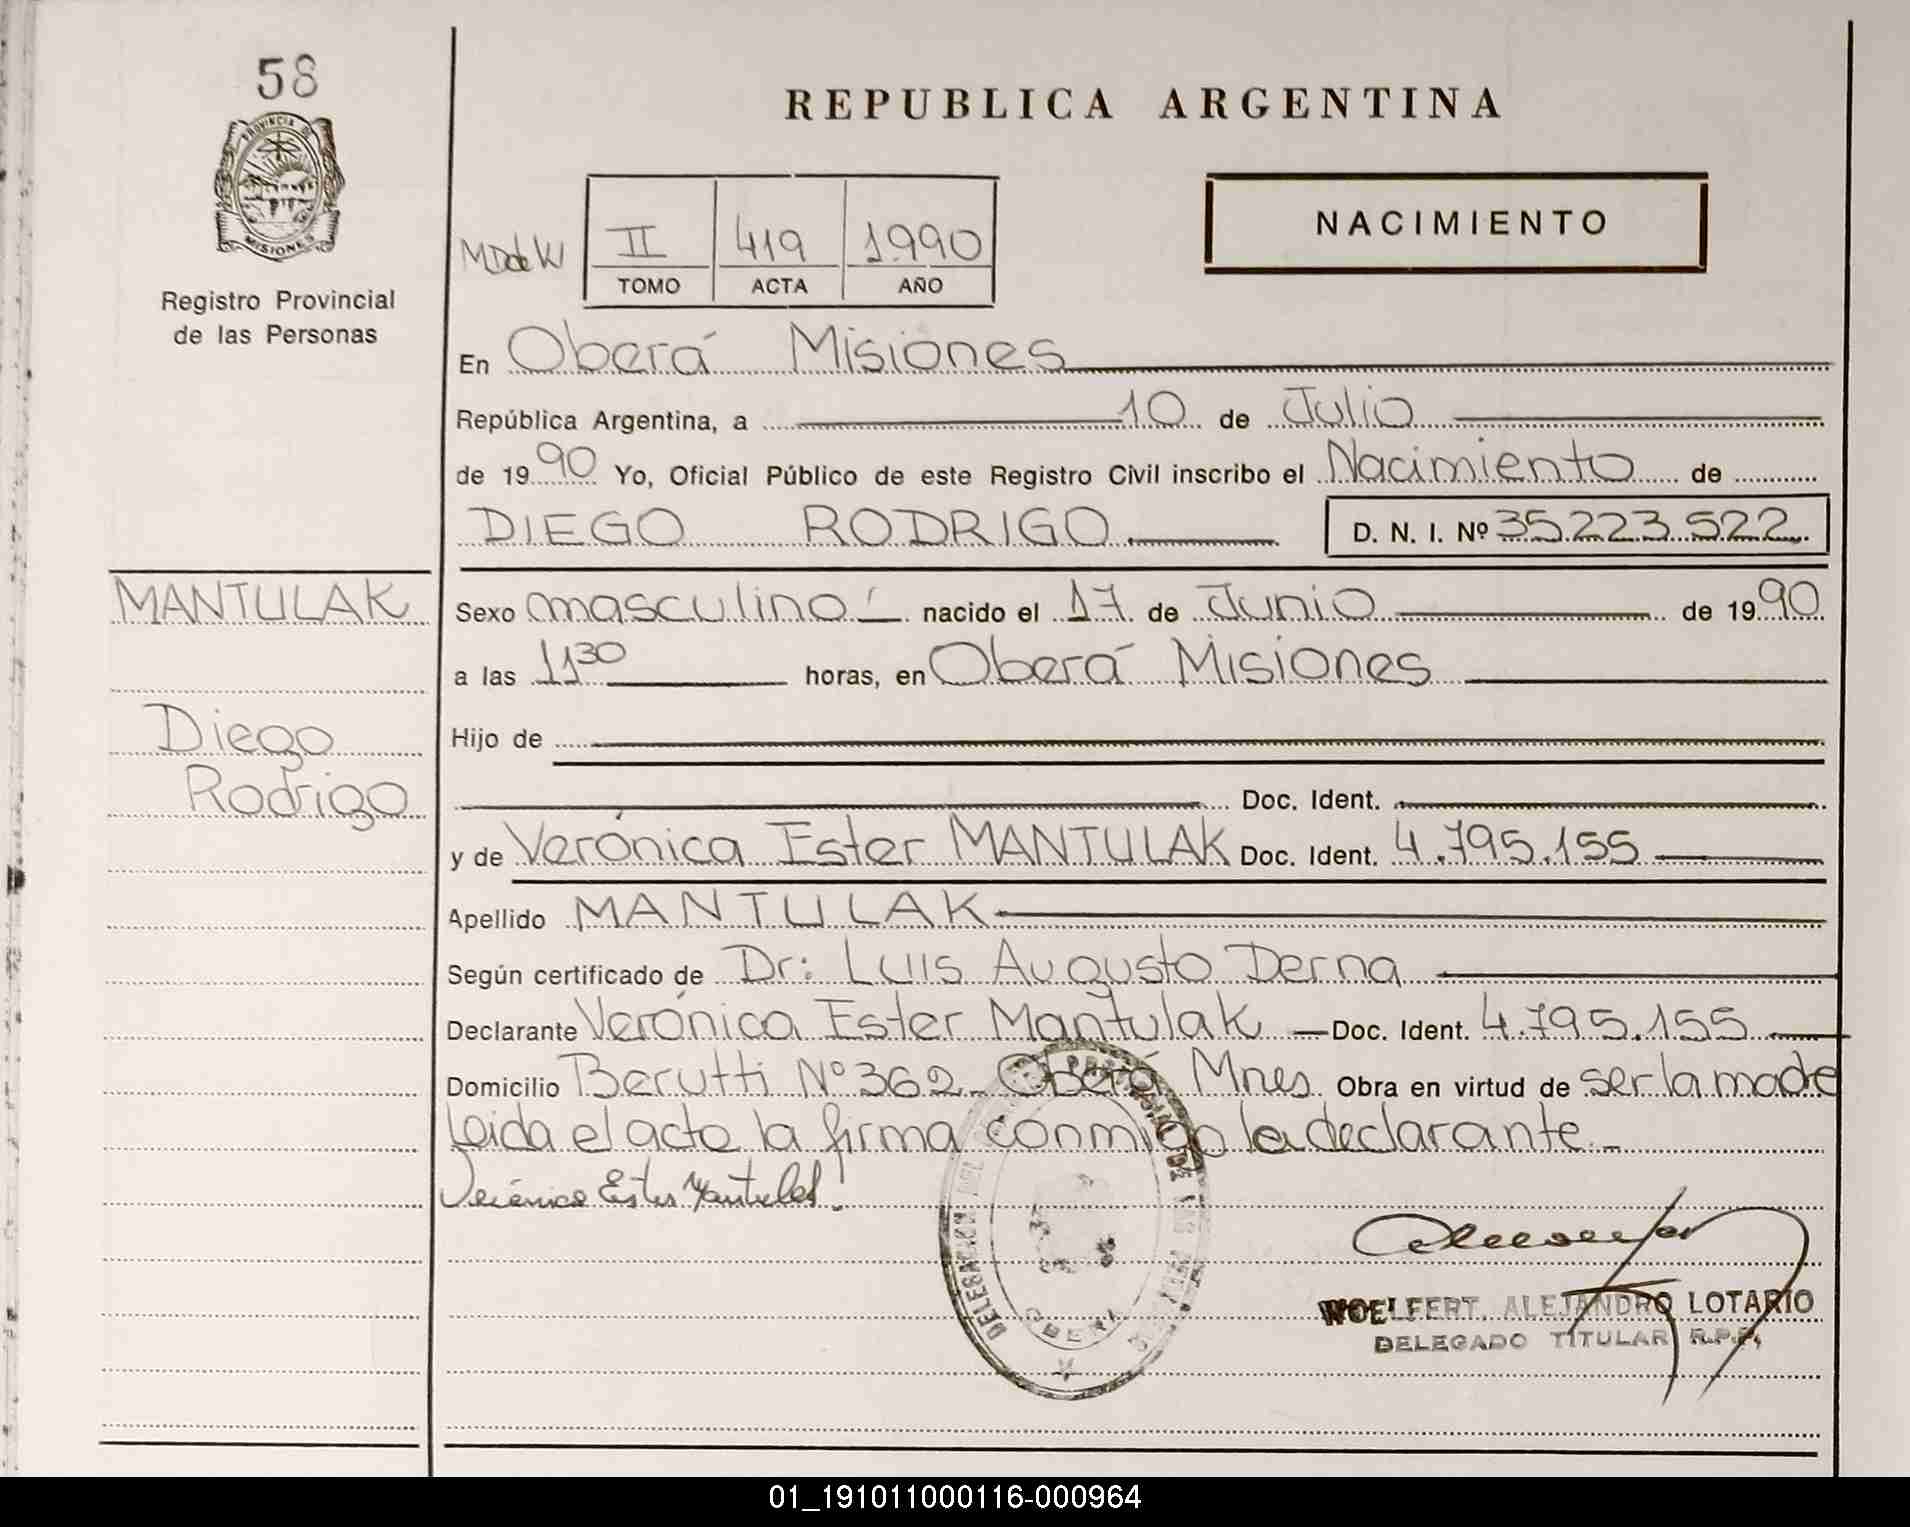 58
PROVINCIA DE
MISIONES
Registro Provincial
de las Personas
REPUBLICA ARGENTINA
NACIMIENTO
II 419 1990
TOMO ACTA AÑO
En Oberá Misiones
República Argentina, a 10 de Julio
de 1990 Yo, Oficial Público de este Registro Civil inscribo el Nacimiento de
DIEGO RODRIGO D. N. I. Nº 35.223.522
MANTULAK
Diego
Rodrigo
Sexo masculino nacido el 17 de Junio de 1990
a las 11 30 horas, en Oberá Misiones
Hijo de
Doc. Ident.
y de Verónica Ester MANTULAK Doc. Ident. 4.795.155
Apellido MANTULAK
Según certificado de Dr: Luis Augusto Derna
Declarante Verónica Ester Mantulak Doc. Ident. 4.795.155
Domicilio Berutti Nº 362 Oberá Mnes Obra en virtud de ser la madre
Leida el acta la firma conmigo la declarante.-
Verónica Ester Mantulak
DELEGACION DEL
DE LAS
OBERA
WOELFERT, ALEJANDRO LOTARIO
DELEGADO TITULAR R.P.P.
01_191011000116-000964